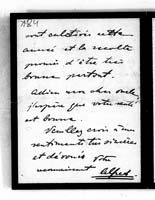 1884
sont cultivés cette
année et la récolte
promet d'être très
bonne partout.
Adieu mon cher oncle
j'espère que votre santé
est bonne.
Veuillez croire à mes
sentiments très sincères
et dévoués Votre
reconnaissant Alfred